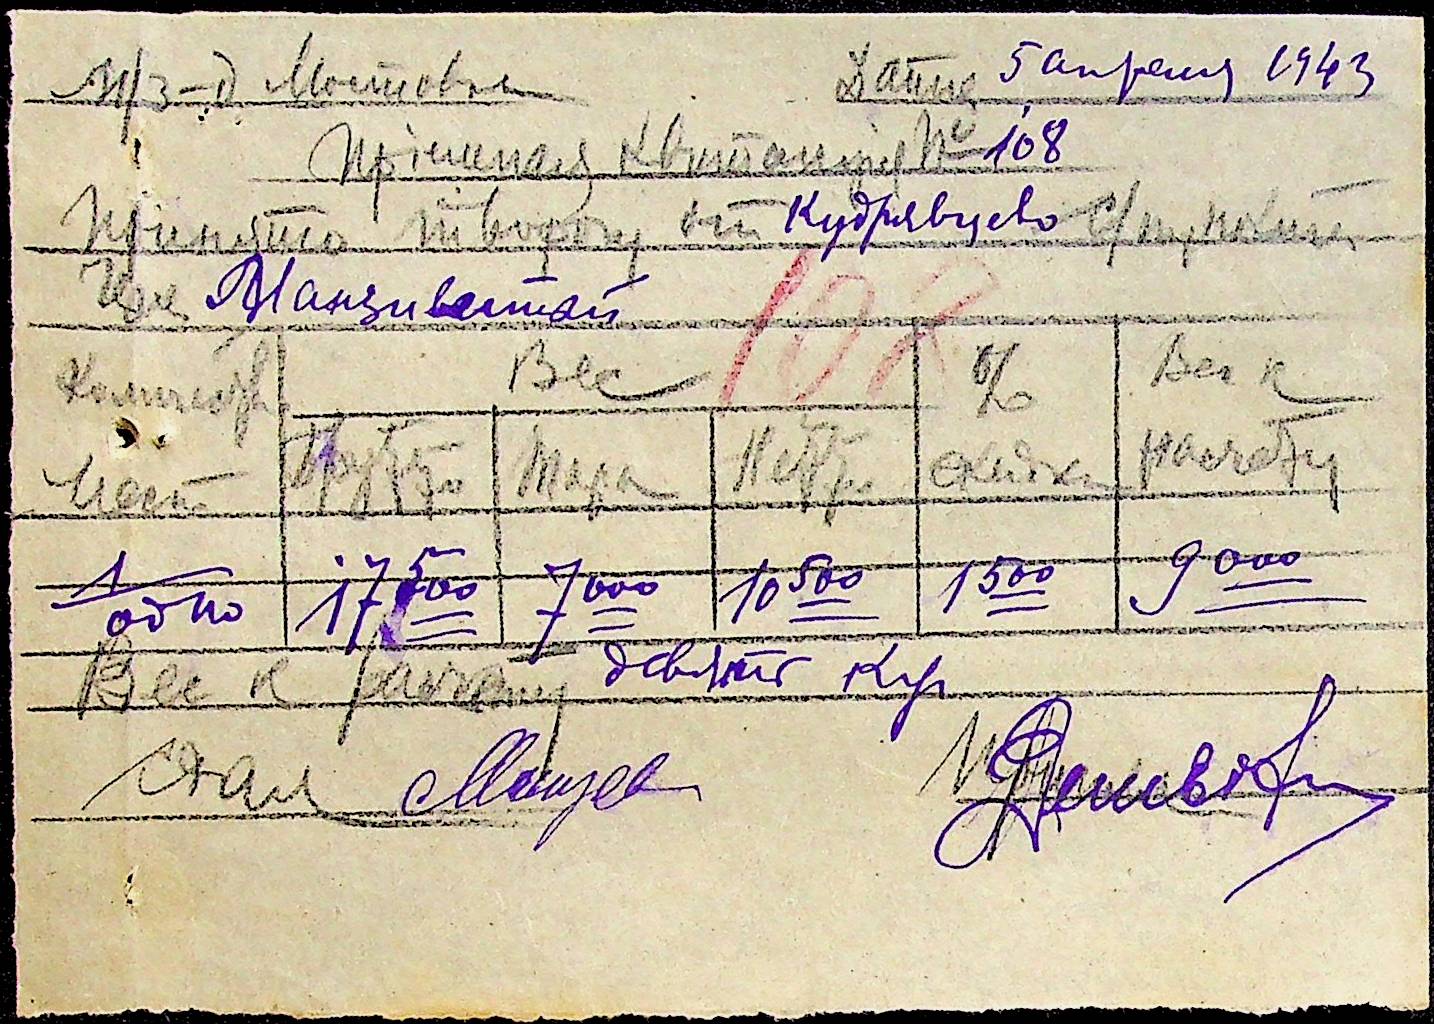 М/з-д Мостовье Дата 5 апреля 1943
Приемная квитанция № 108
Принято творогу от Кудрявцево С/пункт
Через
108
Количество Вес % Вес к
мест Брутто Тара Нетто скидки расчету
1 одно 17 500 7 000 10 500 1 500 9 000
Вес к расчету девять кгр
Сдал Принял